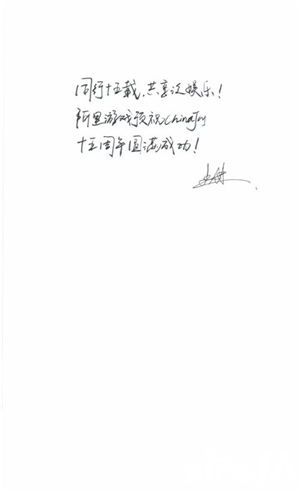 同行十五载，共享泛娱乐！
阿里游戏预祝ChinaJoy
十五周年圆满成功！
史仓健